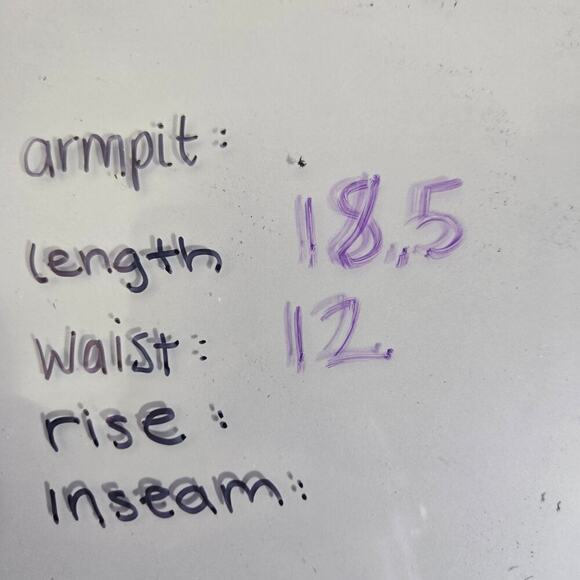 armpit:
length 18.5
waist: 12
rise:
inseam: